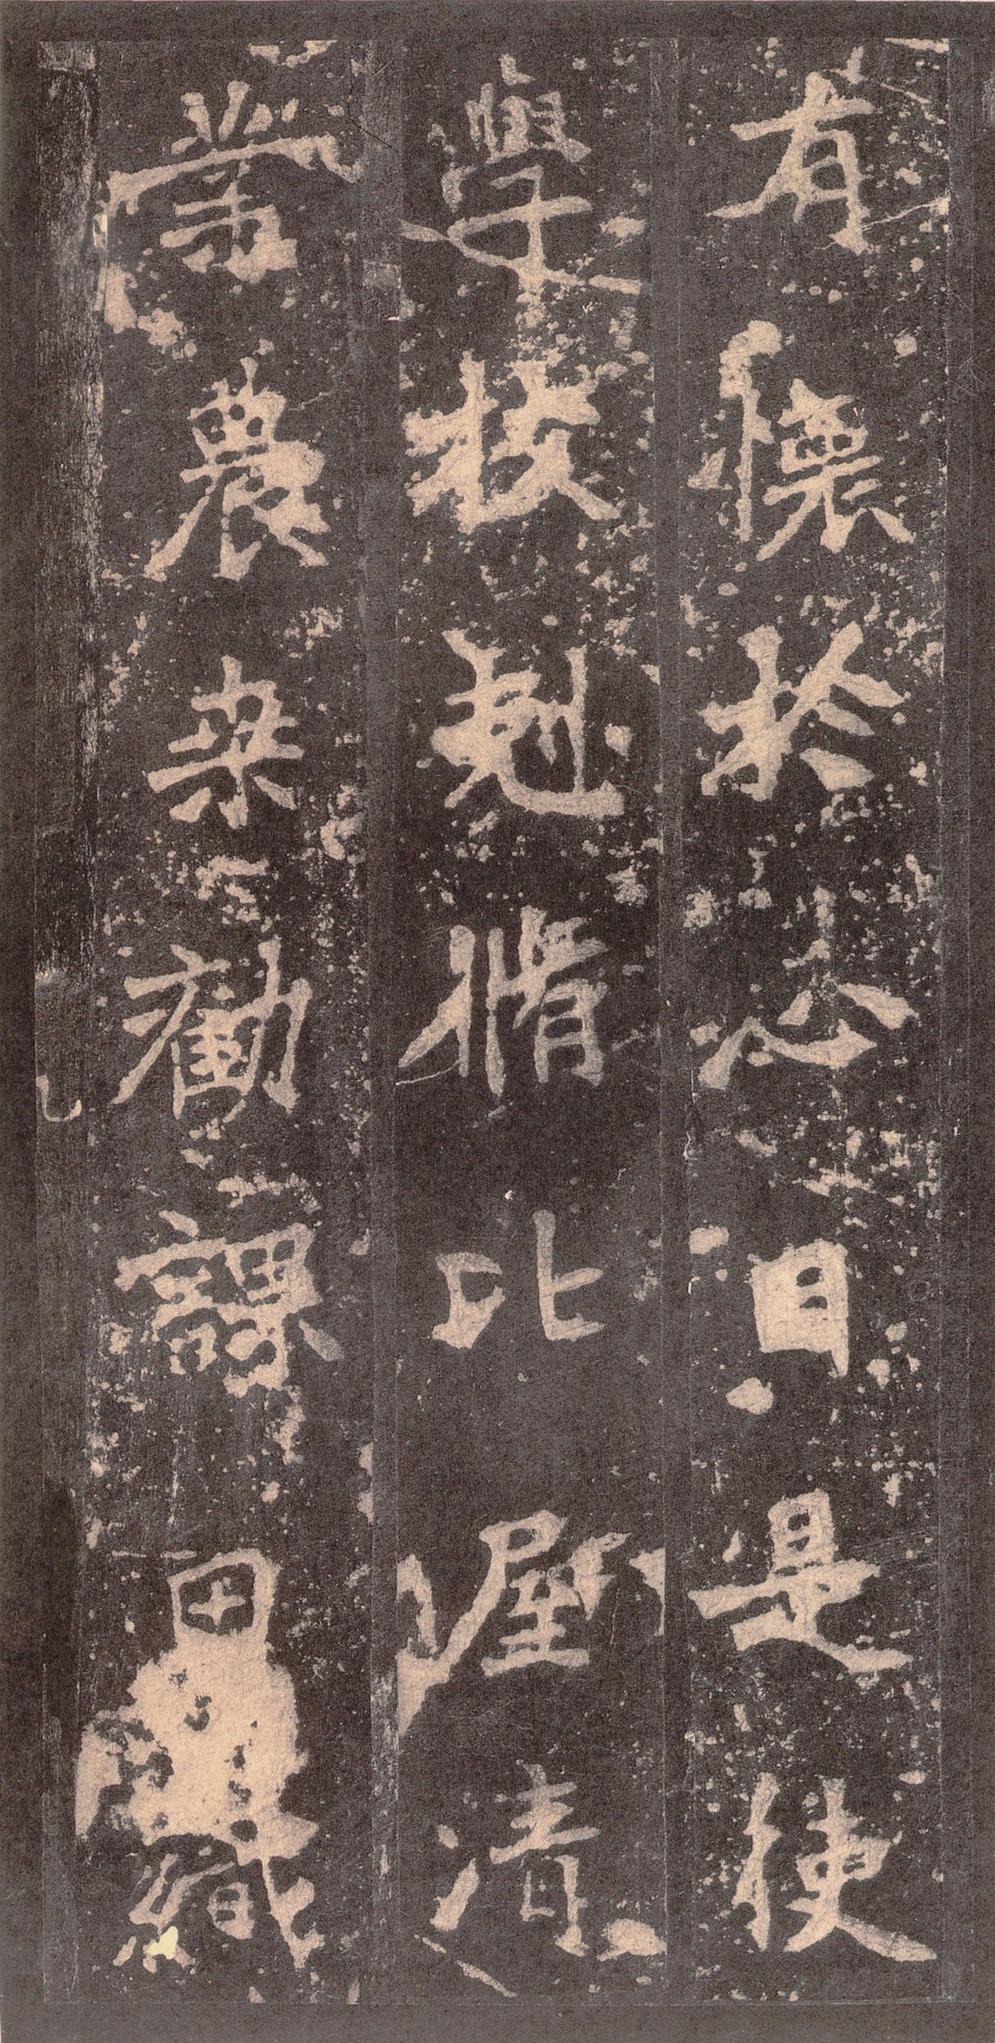 有懷於心目是使
學校剋脩比屋清
業農桒勸課田織